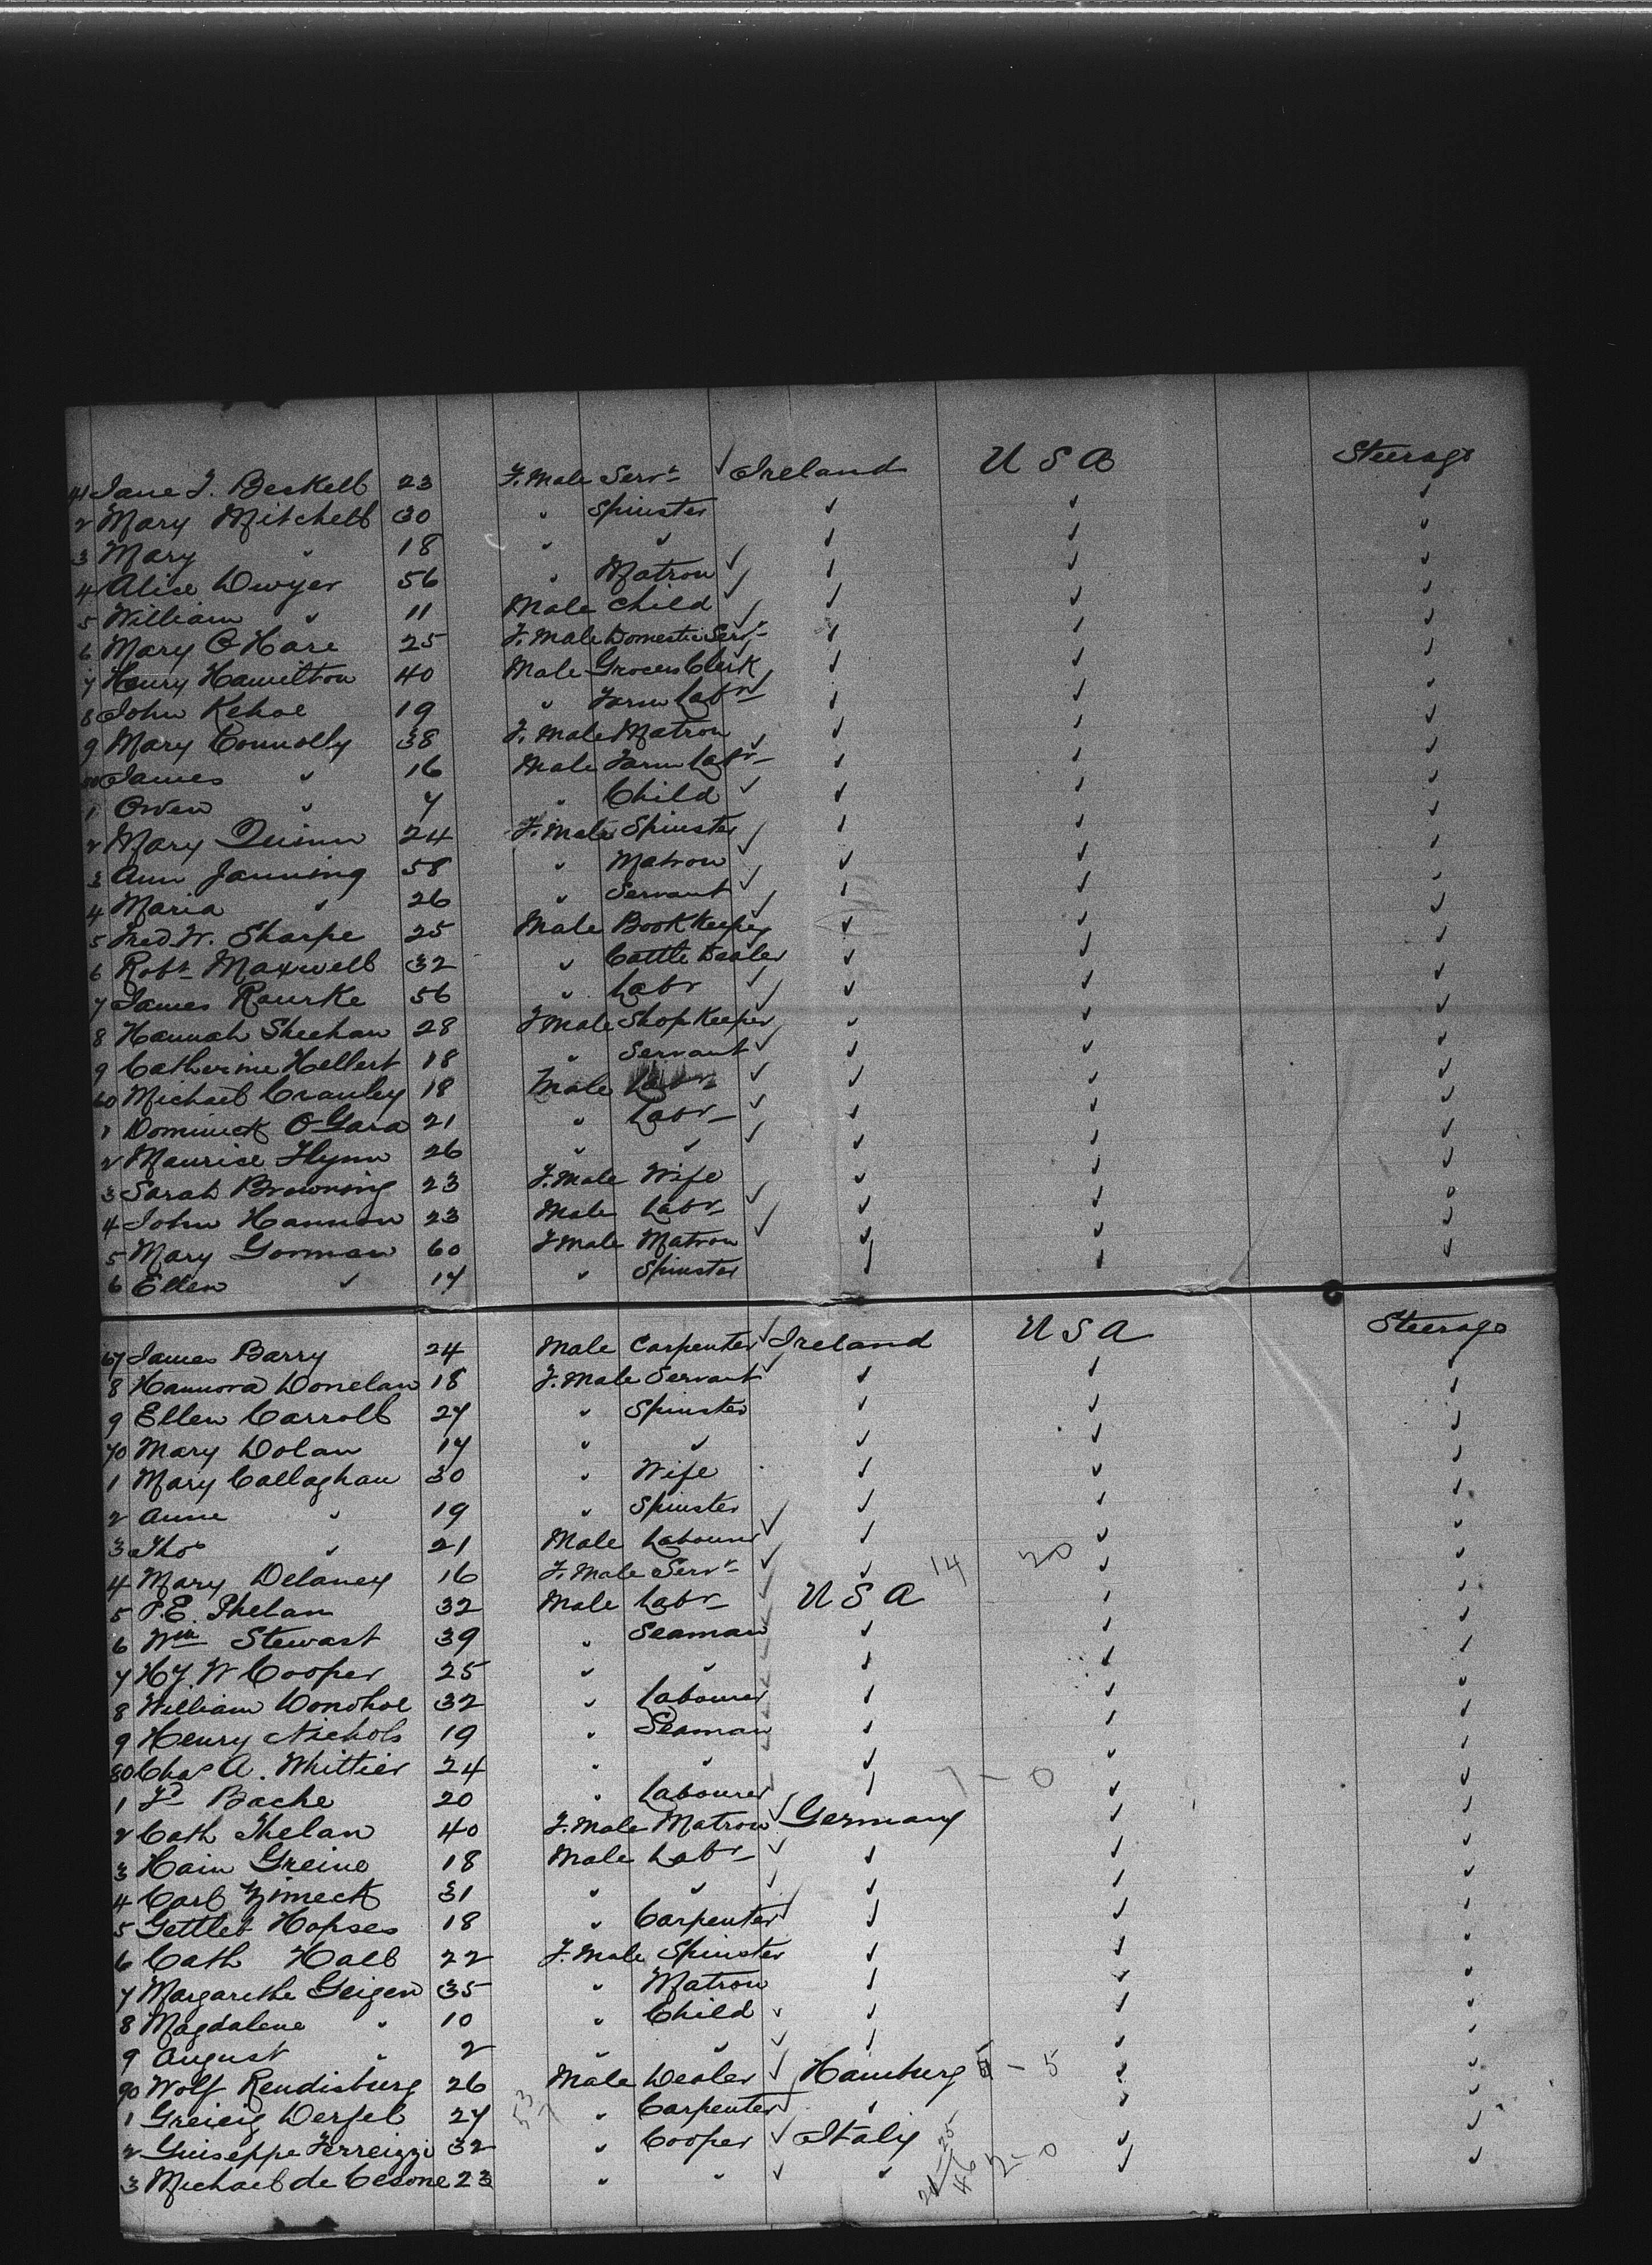 41 Jane J. Beskell 23 F. Male Servt Ireland U S A Steerage
2 Mary Mitchell 30 " Spinster " " "
3 Mary " 18 " " " " "
4 Alice Dwyer 56 " Matron " " "
5 William " 11 Male Child " " "
6 Mary O Hare 25 F. Male Domestic Servt " " "
7 Henry Hamilton 40 Male Grocers Clerk " " "
8 John Kehoe 19 " Farm Labr " " "
9 Mary Connolly 38 F. Male Matron " " "
50 James " 16 Male Farm Labr " " "
1 Owen " 7 " Child " " "
2 Mary Quinn 24 F. Male Spinster " " "
3 Ann Janning 58 " Matron " " "
4 Maria " 26 " Servant " " "
5 Fred W. Sharpe 25 Male Book Keeper " " "
6 Robt Maxwell 32 " Cattle Dealer " " "
7 James Rourke 56 " Labr " " "
8 Hannah Sheehan 28 F Male Shop Keeper " " "
9 Catherine Hellert 18 " Servant " " "
60 Michael Cranley 18 Male Labr " " "
1 Dominick O Gara 21 " Labr " " "
2 Maurice Flynn 26 " " " " "
3 Sarah Browning 23 F. Male Wife " " "
4 John Hannon 23 Male Labr " " "
5 Mary Gorman 60 F Male Matron " " "
6 Ellen " 17 " Spinster " " "
67 James Barry 24 Male Carpenter Ireland U S A Steerage
8 Hannora Donelan 18 F. Male Servant " " "
9 Ellen Carroll 27 " Spinster " " "
70 Mary Dolan 17 " " " " "
1 Mary Callaghan 30 " Wife " " "
2 Anne " 19 " Spinster " " "
3 Thos " 21 Male Labourer " " "
4 Mary Delaney 16 F. Male Servt " 14 20 " "
5 P.E. Phelan 32 Male Labr U S A " "
6 Wm Stewart 39 " Seaman " " "
7 Hy. W Cooper 25 " " " " "
8 William Donohoe 32 " Labourer " " "
9 Henry Nichols 19 " Seaman " " "
80 Chas A. Whittier 24 " " " " "
1 Fd Bache 20 " Labourer " 7 - 0 " "
2 Cath Thelan 40 F. Male Matron Germany " "
3 Hain Greine 18 Male Labr " " "
4 Carl Zimeck 31 " " " " "
5 Gettleb Hopses 18 " Carpenter " " "
6 Cath Hall 22 F. Male Spinster " " "
7 Margarethe Geigen 35 " Matron " " "
8 Magdalene " 10 " Child " " "
9 August " 2 " " " " "
90 Wolf Rendisburg 26 Male Dealer Hamburg - 5 " "
1 Greieig Derfel 27 " Carpenter " " "
2 Guiseppe Ferreizzi 32 " Cooper Italy " "
3 Michael de Cesone 23 " " " 2 - 0 " "